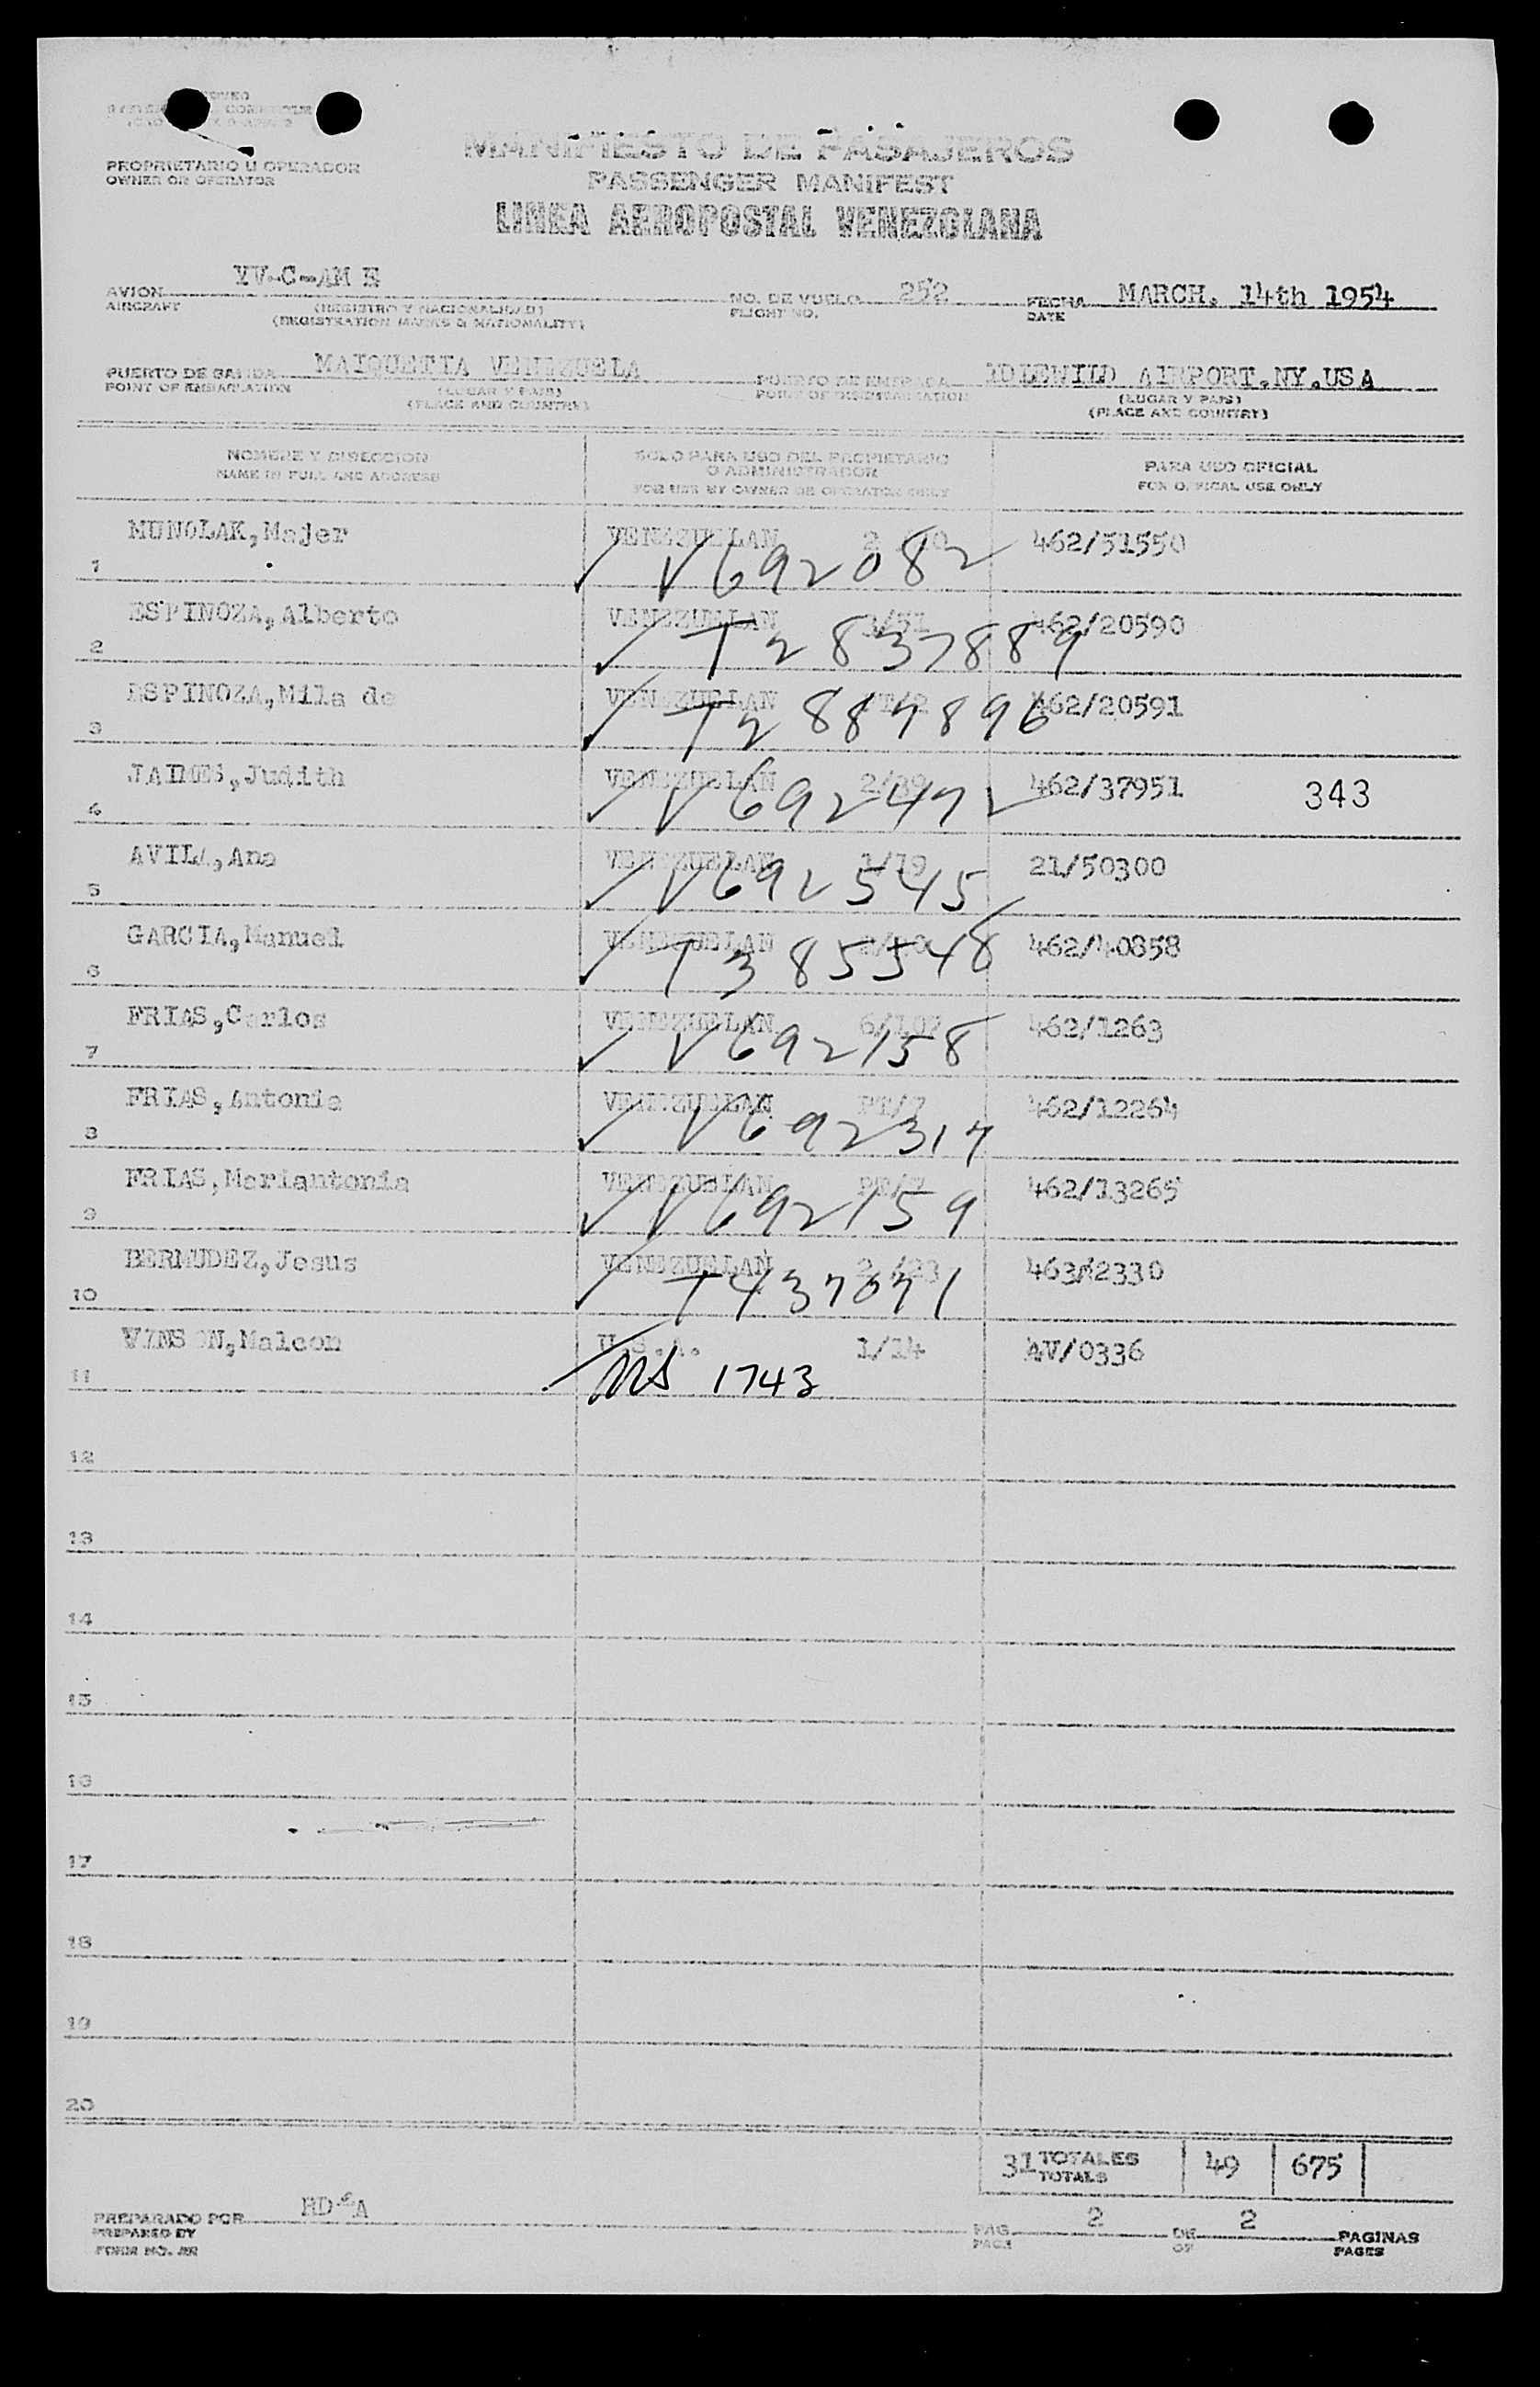 PROPRIETARIO U OPERADOR
OWNER OR OPERATOR
MANIFIESTO DE PASAJEROS
PASSENGER MANIFEST
LINEA AEROPOSTAL VENEZOLANA
AVION YV-C-AM E NO. DE VUELO 252 FECHA MARCH. 14th 1954
AIRCRAFT (REGISTRO Y NACIONALIDAD) FLIGHT NO. DATE
(REGISTRATION MARKS & NATIONALITY)
PUERTO DE SALIDA MAIQUETIA VENEZUELA PUERTO DE ENTRADA IDLEWILD AIRPORT.NY.USA
POINT OF EMBARKATION (LUGAR Y PAIS) POINT OF DISEMBARKATION (LUGAR Y PAIS)
(PLACE AND COUNTRY) (PLACE AND COUNTRY)
NOMBRE Y DIRECCION SOLO PARA USO DEL PROPIETARIO PARA USO OFICIAL
O ADMINISTRADOR
NAME IN FULL AND ADDRESS FOR USE BY OWNER OR OPERATOR ONLY FOR OFFICIAL USE ONLY
MUNOLAK,Majer VENEZUELAN 462/51550
1 ✓ V692082
ESPINOZA,Alberto VENEZUELAN 462/20590
2 ✓ T2837889
ESPINOZA,Mila de VENEZUELAN 462/20591
3 ✓ T2887896
JAIMES,Judith VENEZUELAN 2/39 462/37951 343
4 ✓ V692472
AVILA,Ana VENEZUELAN 1/19 21/50300
5 ✓ V692545
GARCIA,Manuel VENEZUELAN 462/40858
6 ✓ T385548
FRIAS,Carlos VENEZUELAN 6/107 462/1263
7 ✓ V692158
FRIAS,Antonia VENEZUELAN PT/7 462/12264
8 ✓ V692317
FRIAS,Mariantonia VENEZUELAN PT/7 462/13265
9 ✓ V692159
BERMUDEZ,Jesus VENEZUELAN 2/23 463/2330
10 ✓ T437071
VINSON,Malcon U.S.A. 1/14 AV/0336
11 1743
12
13
14
15
16
17
18
19
20
31 TOTALES 49 675
TOTALS
PREPARADO POR RD A PAG. 2 DE 2 PAGINAS
PREPARED BY PAGE OF PAGES
FORM NO.